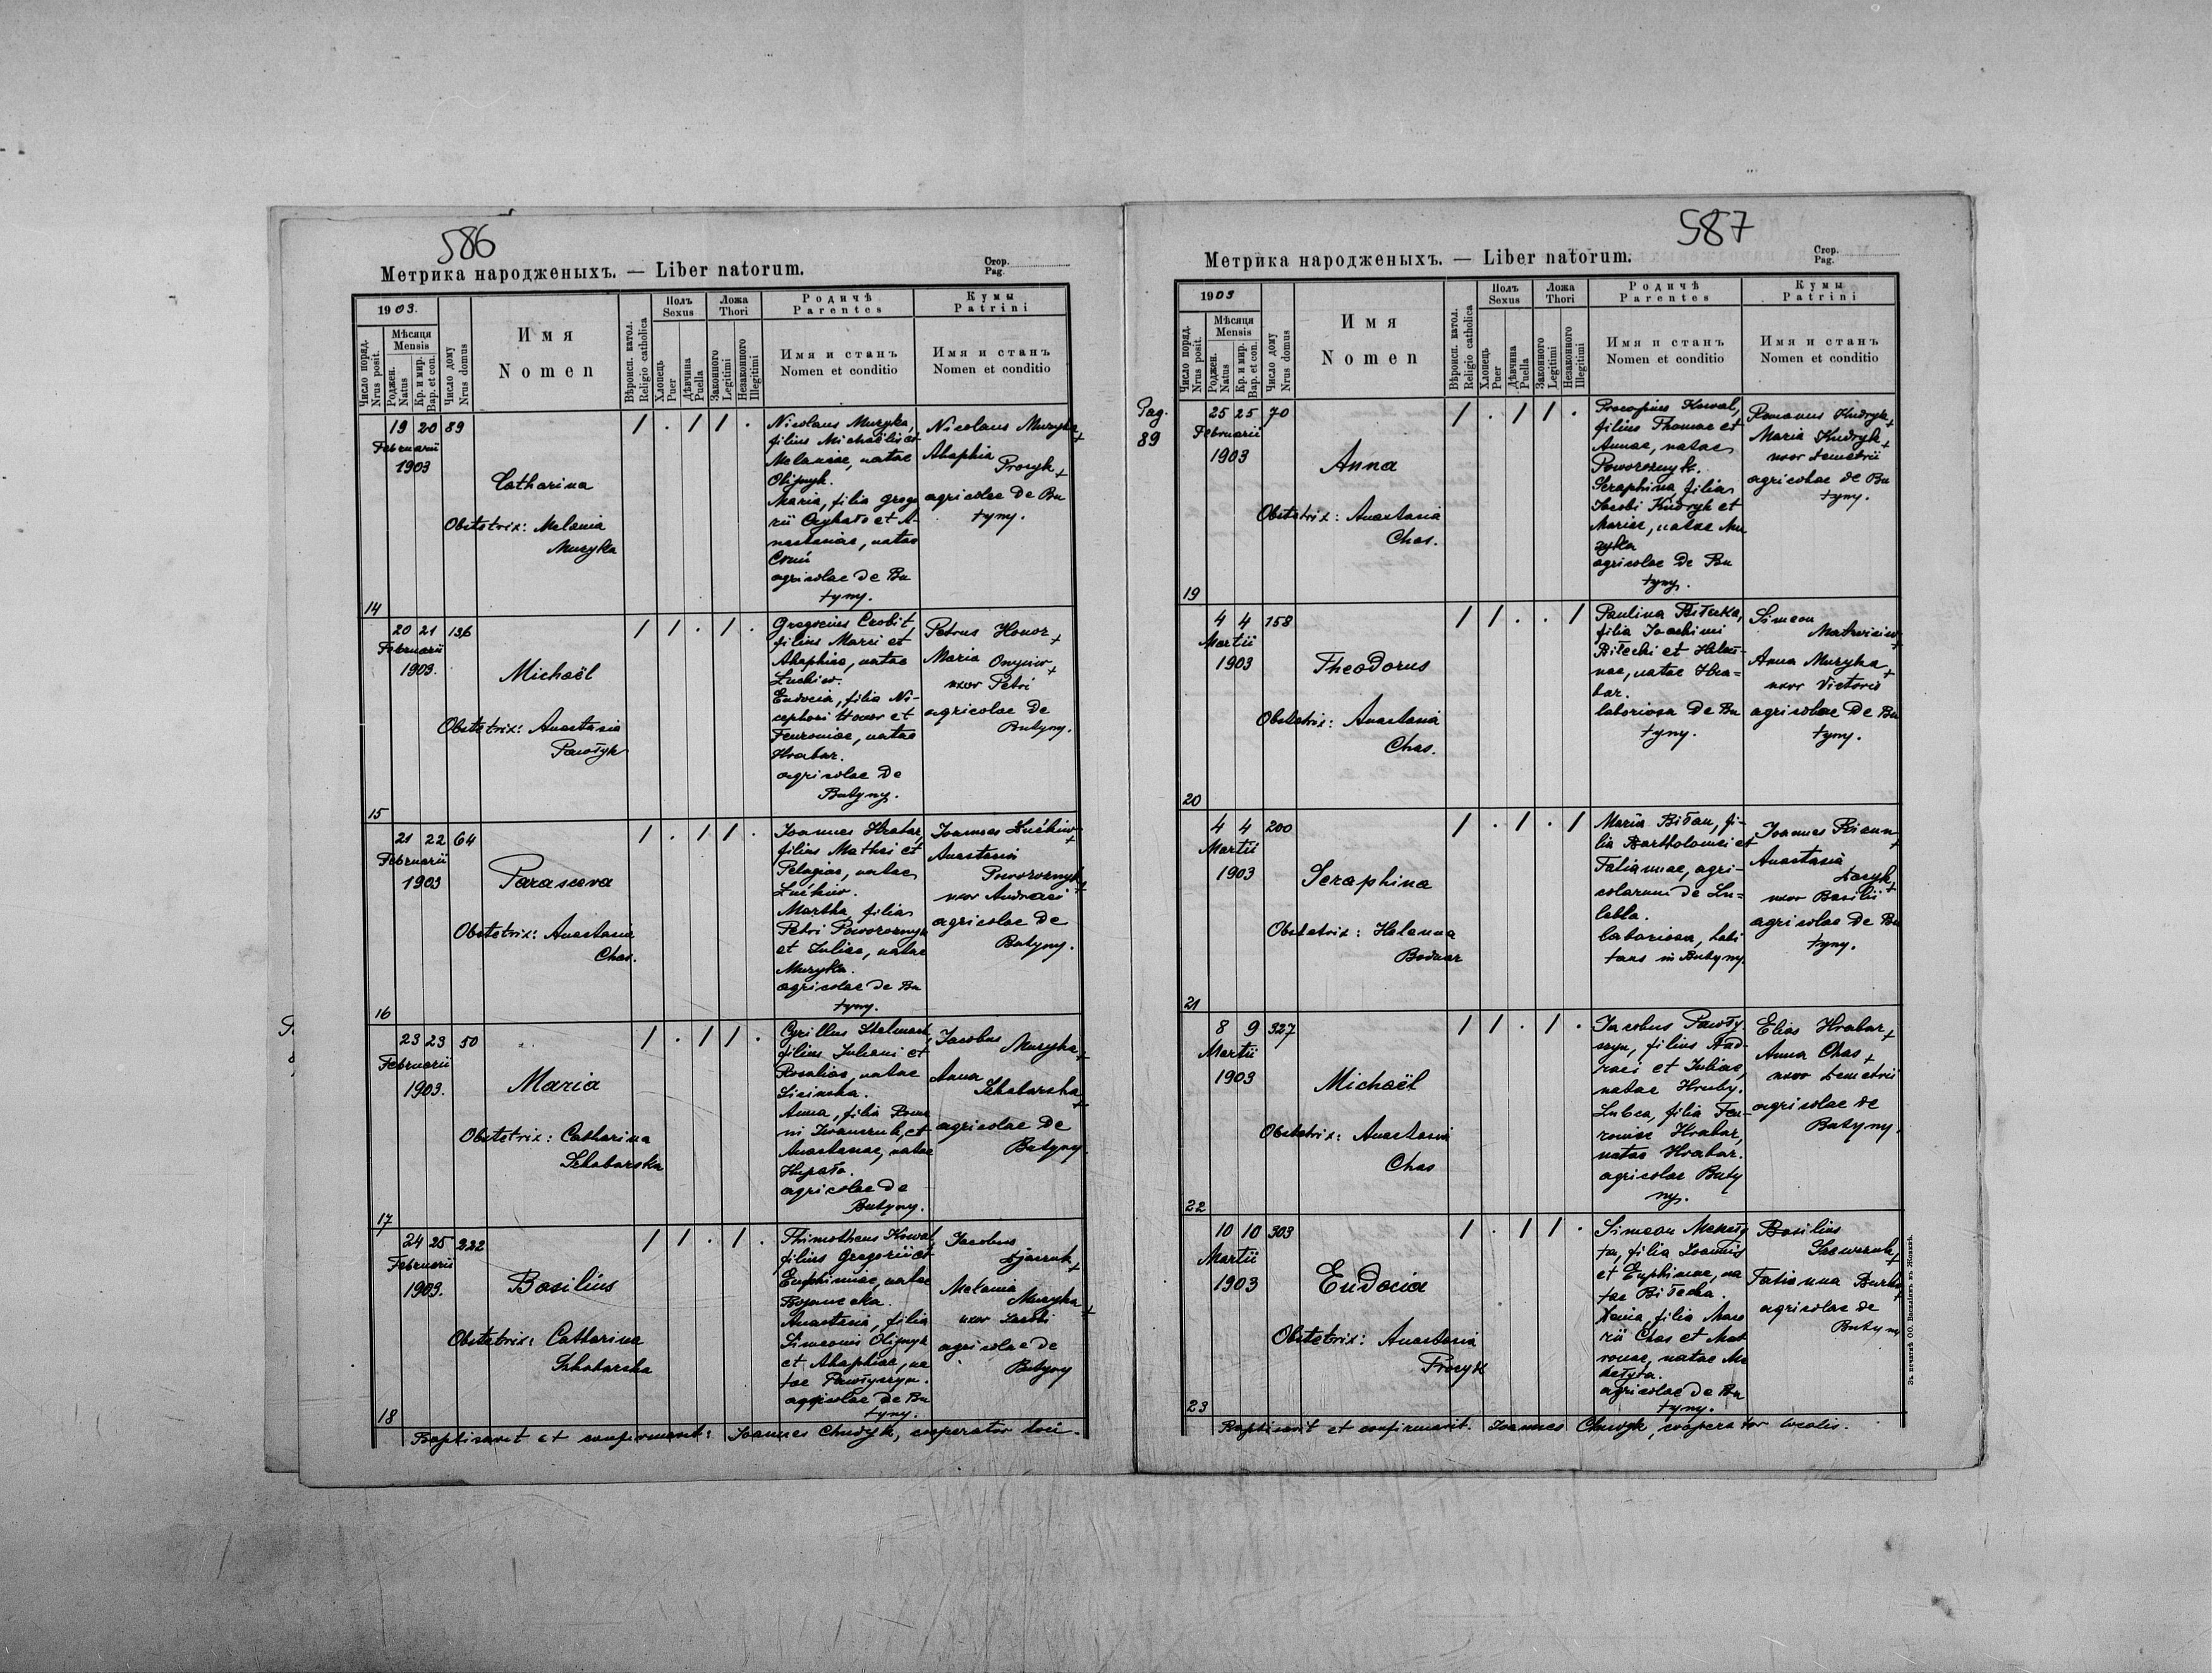 586
Метрика народженыхъ. — Liber natorum.
Стор.
Pag.
1903.
Число поряд.
Nrus posit.
Мѣсяця
Mensis
Роджен.
Natus
Кр. и мир.
Bap. et con.
Число дому
Nrus domus
Имя
Nomen
Вѣроисп. катол.
Religio catholica
Полъ
Sexus
Хлопець
Puer
Дѣвчина
Puella
Ложа
Thori
Законного
Legitimi
Незаконного
Illegitimi
Родичѣ
Parentes
Имя и станъ
Nomen et conditio
Кумы
Patrini
Имя и станъ
Nomen et conditio
14
19 20 89
Februarii
1903
Catharina
Obstetrix: Melania
Muzyka
/ . / / .
Nicolaus Muzyka,
filius Michaëlis et
Melaniae, natae
Olijnyk.
Maria, filia Grego
rii et A-
nastasiae, natae
agricolae de Bu
tyny.
Nicolaus Muzyka +
Ahaphia
Procyk +
agricolae de Bu
tyny.
15
20 21 136
Februarii
1903.
Michaël
Obstetrix: Anastasia
Pawłyk
/ / . / .
Gregorius Czobit,
filius Marci et
Ahaphiae, natae
Łuckiw.
Eudocia, filia Ni-
cephori Honor et
Feuroniae, natae
Hrabar.
agricolae de
Butyny.
Petrus Honor +
Maria +
uxor Petri
agricolae de
Butyny.
16
21 22 64
Februarii
1903
Parasceva
Obstetrix: Anastasia
Chas.
/ . / / .
Joannes Hrabar,
filius Mathei et
Pelagiae, natae
Łućkiw.
Martha, filia
Petri Poworoznyk
et Juliae, natae
Muzyka.
agricolae de Bu
tyny.
Joannes Łućkiw +
Anastasia
Poworoznyk +
uxor Andreae
agricolae de
Butyny.
17
23 23 50
Februarii
1903.
Maria
Obstetrix: Catharina
Szkabarska
/ . / / .
Cyrillus Stelmach,
filius Juliani et
Rosaliae, natae
Anna, filia Roma
ni Iwanczuk, et
Anastasiae, natae
agricolae de
Butyny.
Jacobus
Muzyka +
Anna
Szkabarska +
agricolae de
Butyny.
18
24 25 222
Februarii
1903.
Basilius
Obstetrix: Catharina
Szkabarska
/ / . / .
Thimotheus Kowal,
filius Gregorii et
Euphimiae, natae
Anastasia, filia
Simeonis Olijnyk
et Ahaphiae, na
tae Pawłyszyn.
agricolae de Bu
tyny.
Jacobus
+
Melania
Muzyka +
uxor Jacobi
agricolae de
Butyny
Baptisavit et confirmavit: Joannes Chudyk, cooperator loci.
587
Метрика народженыхъ. — Liber natorum.
Стор.
Pag.
1903
Число поряд.
Nrus posit.
Мѣсяця
Mensis
Роджен.
Natus
Кр. и мир.
Bap. et con.
Число дому
Nrus domus
Имя
Nomen
Вѣроисп. катол.
Religio catholica
Полъ
Sexus
Хлопець
Puer
Дѣвчина
Puella
Ложа
Thori
Законного
Legitimi
Незаконного
Illegitimi
Родичѣ
Parentes
Имя и станъ
Nomen et conditio
Кумы
Patrini
Имя и станъ
Nomen et conditio
Pag.
89
19
25 25 70
Februarii
1903
Anna
Obstetrix: Anastasia
Chas.
/ . / / .
Procopius Kowal,
filius Thomae et
Annae, natae
Poworoznyk.
Seraphina, filia
Jacobi Kudryk et
Mariae, natae Mu
zyka
agricolae de Bu
tyny.
Romanus Kudryk +
Maria Kudryk +
uxor Demetrii
agricolae de Bu
tyny.
20
4 4 158
Martii
1903
Theodorus
Obstetrix: Anastasia
Chas.
/ / . . /
Paulina Biłecka,
filia Joachimi
Biłecki et Hele-
nae, natae Hra=
bar.
laboriosa de Bu
tyny.
Simeon
Matwiciw +
Anna Muzyka +
uxor Victoris
agricolae de Bu
tyny.
21
4 4 200
Martii
1903
Seraphina
Obstetrix: Helenna
Bodnar
/ . / . /
Maria Biłan, fi-
lia Bartholomei et
Tatiannae, agri-
colarum de Lu=
labla.
laboriosa, habi
tans in Butyny.
Joannes +
Anastasia
+
uxor Basilii
agricolae de Bu
tyny.
22
8 9 327
Martii
1903
Michaël
Obstetrix: Anastasia
Chas
/ / . / .
Jacobus Pawły
szyn, filius And-
reae et Juliae,
natae Hruby.
Lubca, filia Feu-
roniae Hrabar,
natae Hrabar.
agricolae Buty
ny.
Elias Hrabar +
Anna Chas +
uxor Demetrii
agricolae de
Butyny.
23
10 10 303
Martii
1903
Eudocia
Obstetrix: Anastasia
Procyk
/ . / / .
Simeon Mekeły
ta, filia Joannis
et Euphimiae, na
tae Biłecka.
Xenia, filia
Chas et Mat
ronae, natae Me
kełyta.
agricolae de Bu
tyny.
Basilius
+
Tatianna Burka +
agricolae de
Butyny
Baptisavit et confirmavit. Joannes Chudyk, cooperator localis.
Зъ печатнѣ ОО. Василіянъ въ Жовквѣ.